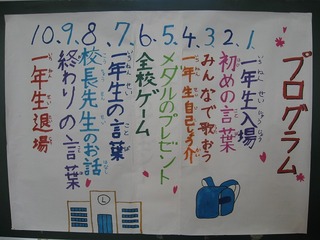 プログラム
1. 一年生入場
2. 初めの言葉
3. みんなで歌おう
4. 一年生自己しょう介
5. メダルのプレゼント
6. 全校ゲーム
7. 一年生の言葉
8. 校長先生のお話
9. 終わりの言葉
10. 一年生退場